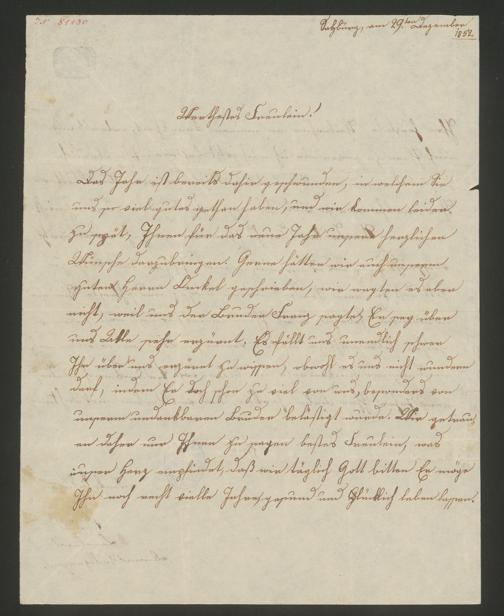 Salzburg, am 29ten Dezember
1852.
Werthestes Fräulein!
Das Jahr ist bereits dahin geschwunden, in welchen Sie
uns so viel gutes gethan haben, und wir kommen leider
zu spät, Ihnen für das neue Jahr unsere herzlichen
Wünsche darzubringen. Gerne hätten wir auch unserm
guten Herrn Onkel geschrieben, wir wagten es aber
nicht, weil uns der Bruder Franz sagte, Er sey über
uns Alle sehr erzürnt. Es fällt uns unendlich schwer
Ihn über uns erzürnt zu wissen, obwohl es uns nicht wundern
darf, indem Er doch schon zu viel von uns, besonders von
unserm undankbaren Bruder belästigt wurde. Wir getrau
en daher nur Ihnen zu sagen bestes Fräulein, was
unser Herz empfindet, daß wir täglich Gott bitten Er möge
Ihn noch recht vielle Jahre gesund und Glücklich leben lassen.